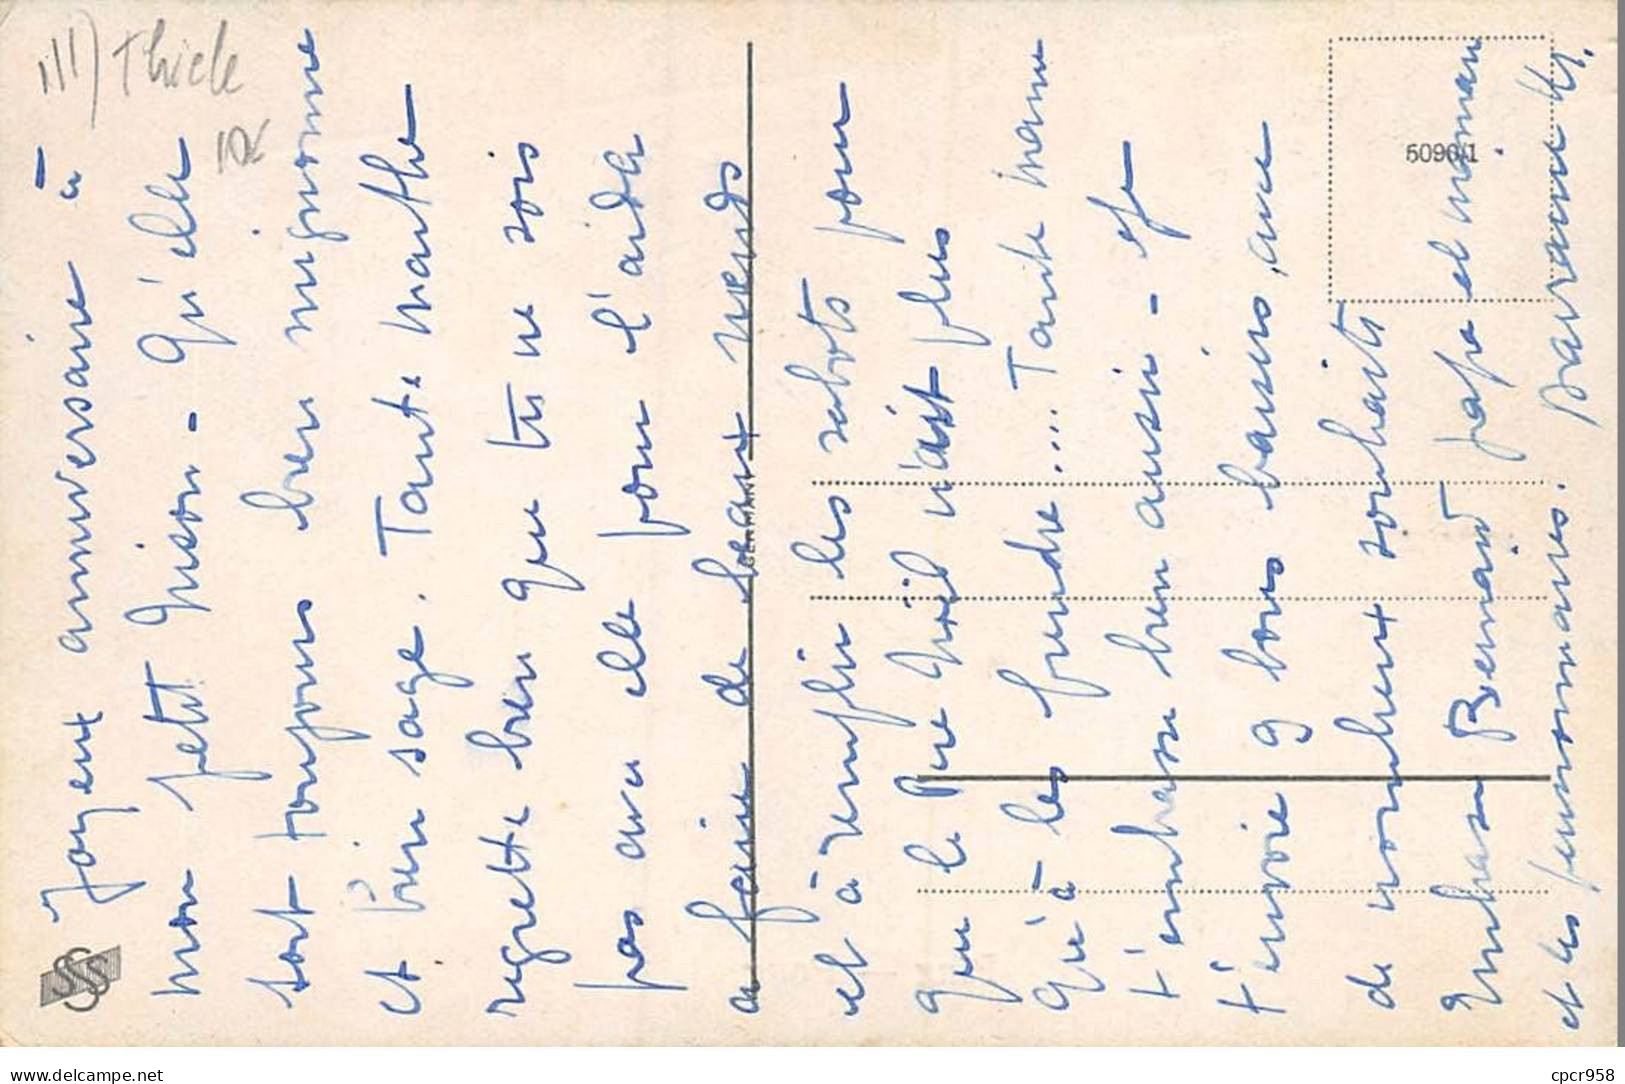 ill) Thiele
Joyeux anniversaire à
mon petit Mison - Qu'elle
soit toujours bien mignonne
et bien sage. Tante Marthe
regrette bien que tu ne sois
pas avec elle pour l'aider
a faire de beaux nœuds
et à remplir les sabots pour
que le Père Noël n'ait plus
qu'à les prendre... Tante Mame
t'embrasse bien aussi - et
t'envoie 9 bons baisers, avec
de nombreux souhaits
Embrasse Bernard papa et maman
et les pensionnaires.
GERMANY
5090/1
delcampe.net
cpcr958